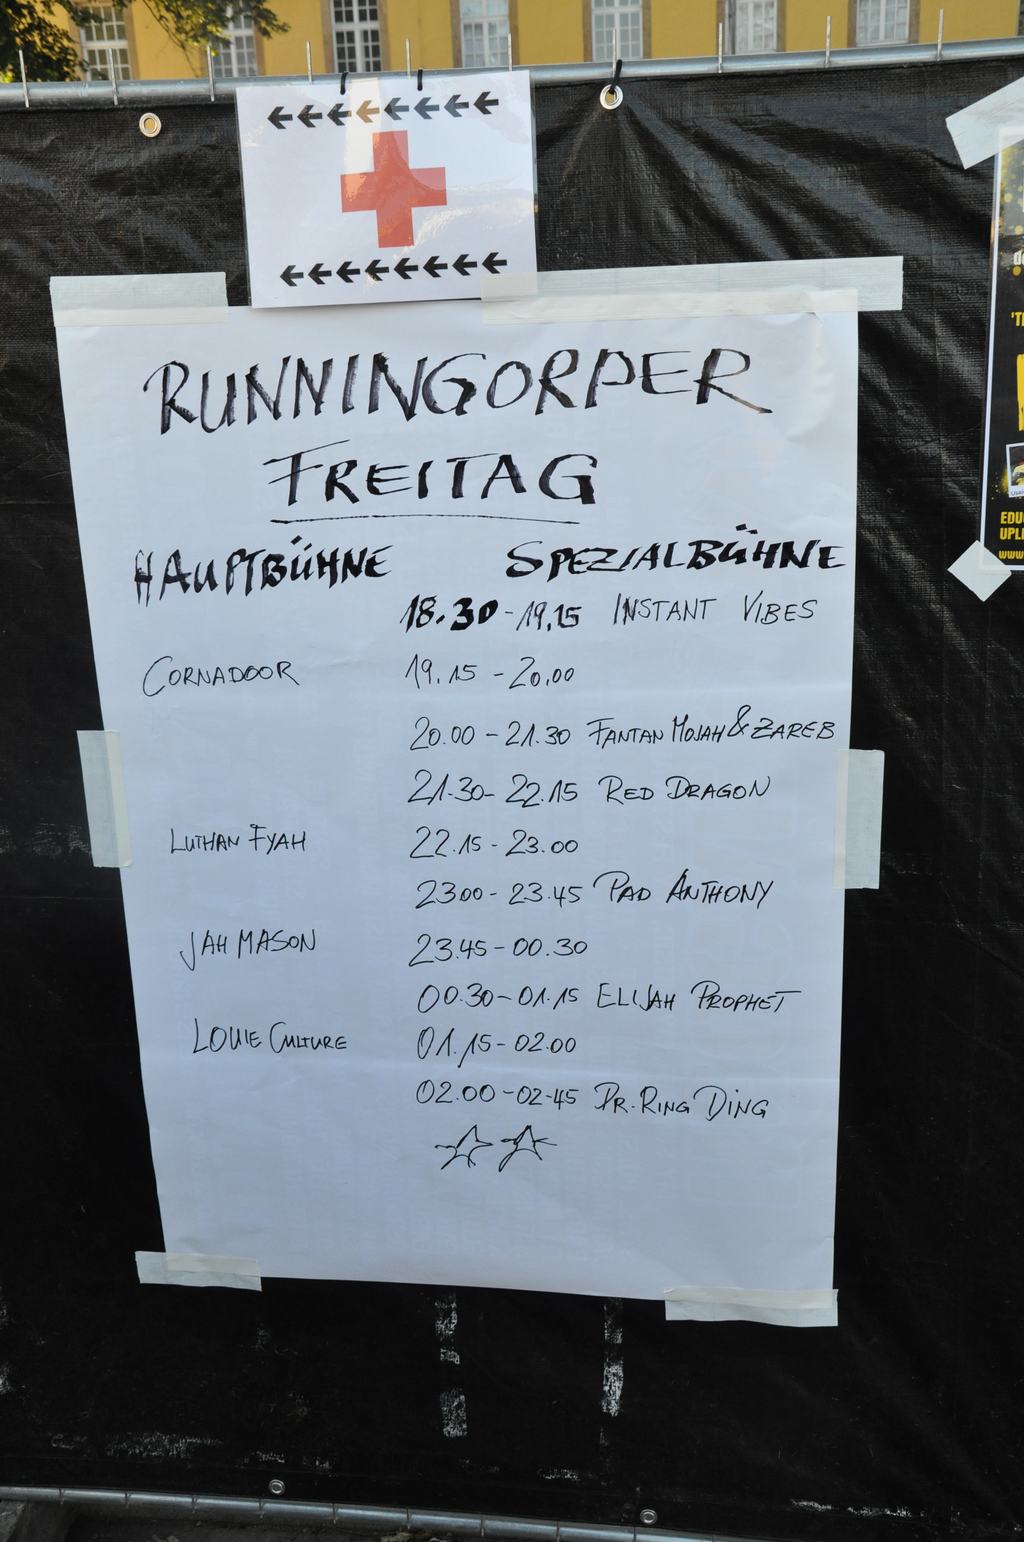 RUNNINGORDER
FREITAG
HAUPTBÜHNE SPEZIALBÜHNE
18.30 - 19.15 INSTANT VIBES
CORNADOOR 19.15 - 20.00
20.00 - 21.30 FANTAN MOJAH & ZAREB
21.30 - 22.15 RED DRAGON
LUTHAN FYAH 22.15 - 23.00
23.00 - 23.45 PAD ANTHONY
JAH MASON 23.45 - 00.30
00.30 - 01.15 ELIJAH PROPHET
LOUIE CULTURE 01.15 - 02.00
02.00 - 02.45 DR. RING DING
EDU
UPLI
www